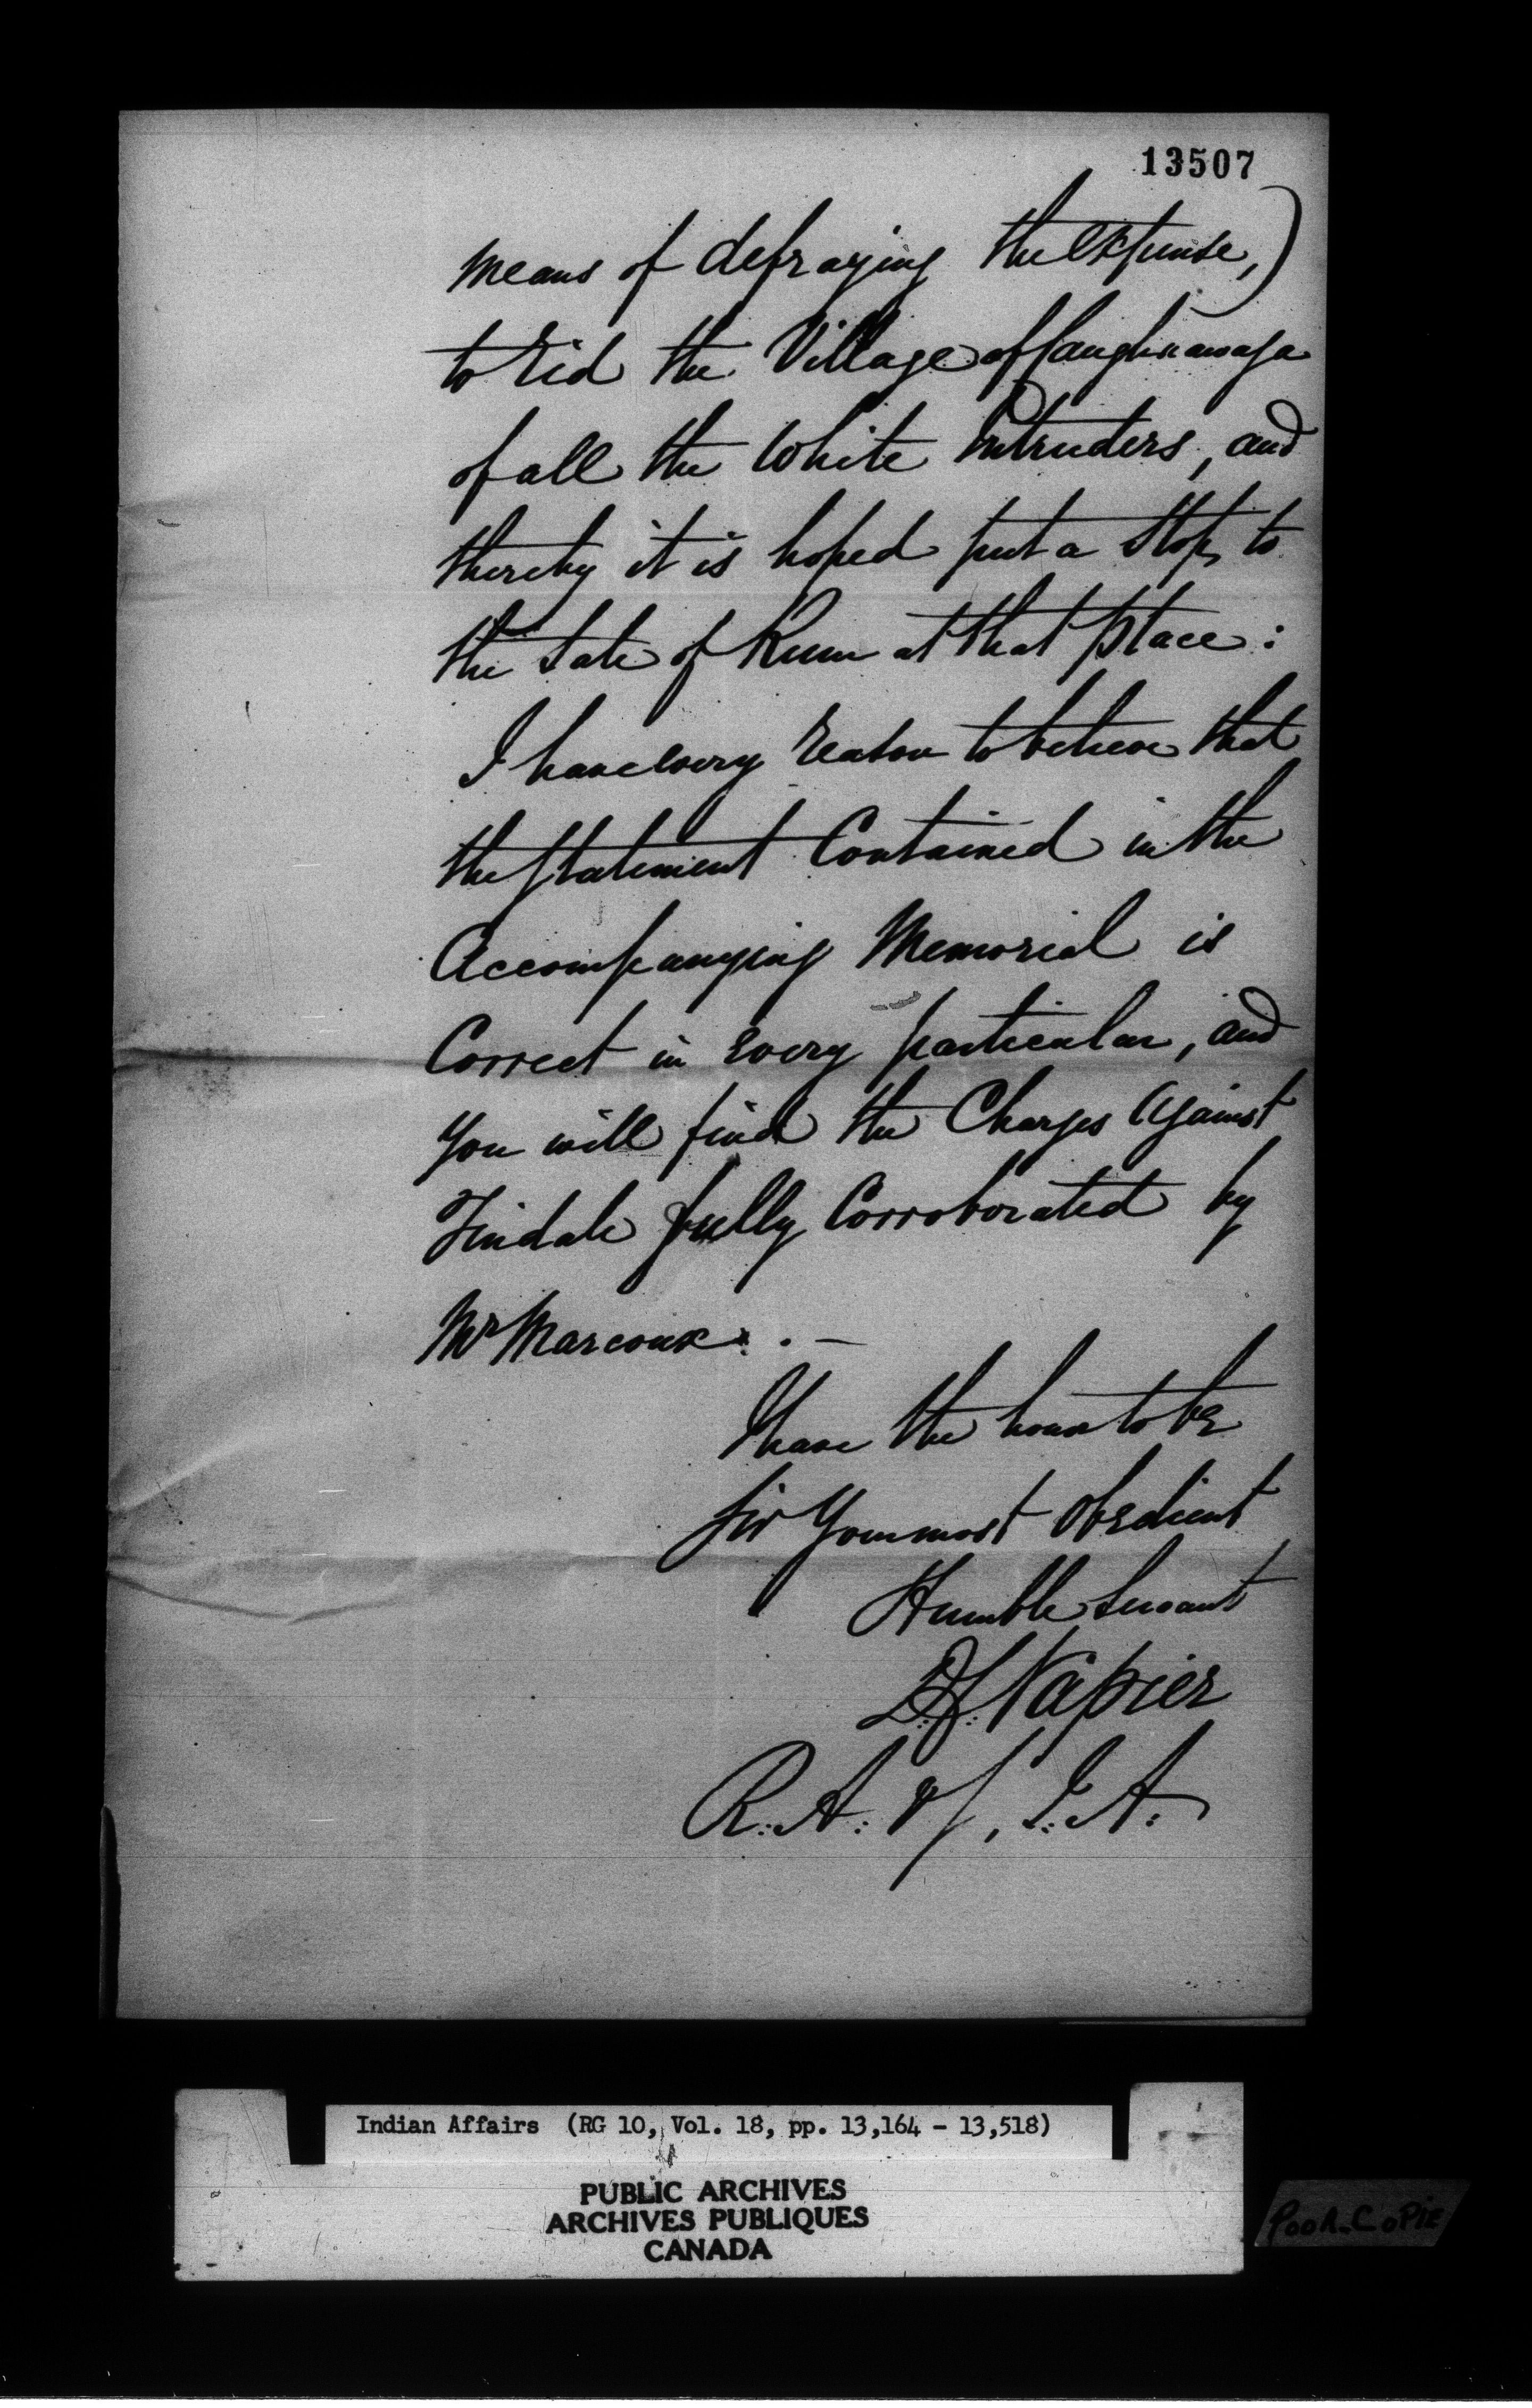 13507
means of defraying the expense,)
to rid the Village of Caughnawaga
of all the White Intruders, and
thereby it is hoped put a Stop to
the Sale of Rum at that place:
I have every reason to believe that
the Statement Contained in the
Accompanying Memorial is
Correct in every particular, and
you will find the Charges Against
Tindale fully Corroborated by
Mr Marcoux. . —
I have the honor to be
Sir Your most Obedient
Humble Servant
D.C. Napier
R.A. of, I.A.
Indian Affairs (RG 10, Vol. 18, pp. 13,164 - 13,518)
PUBLIC ARCHIVES
ARCHIVES PUBLIQUES
CANADA
POOR COPIE